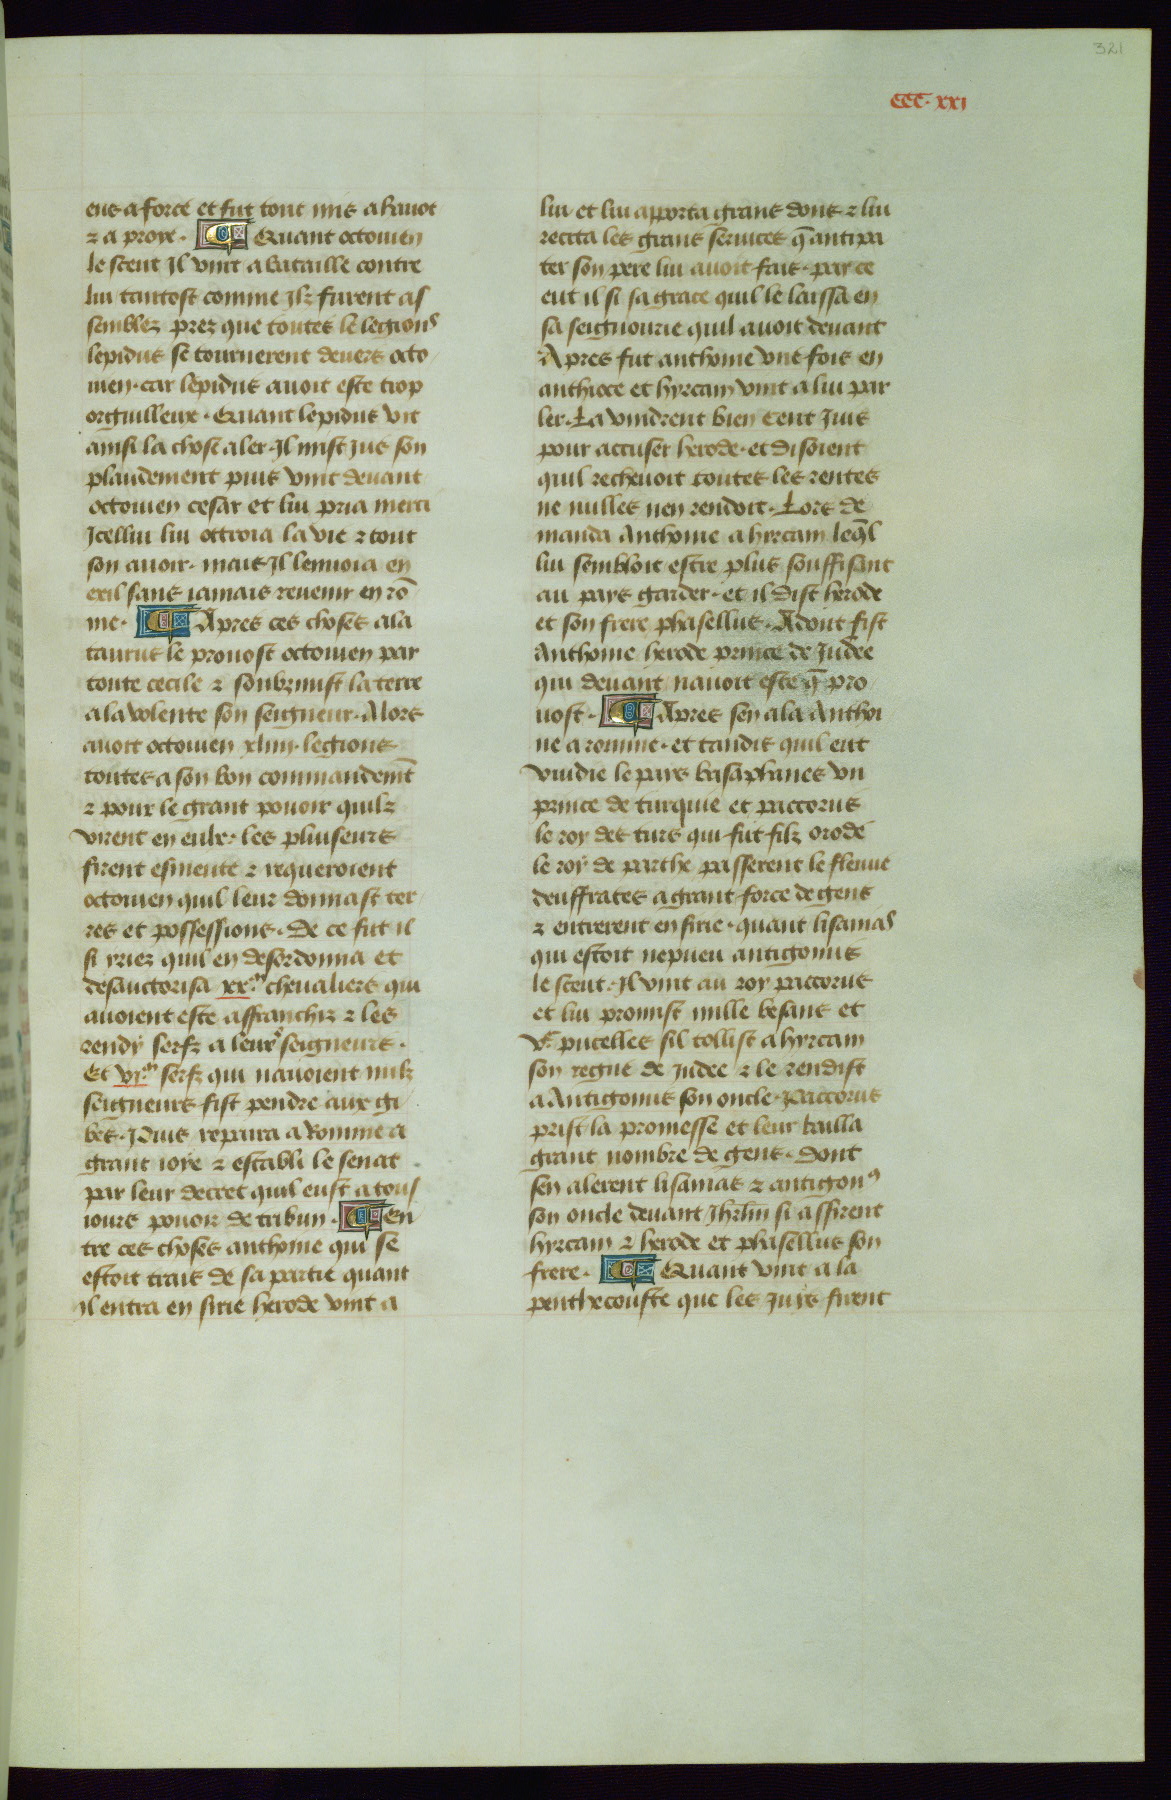 321
CCC. xxi
ens a force et fut tout mis a havot
⁊ a proye. Quant octouien
le sceut Il vint a bataille contre
lui tantost comme Ilz furent as
semblez prez que toutes le legions
lepidus se tournerent deuers octo
uien. car lepidus auoit este trop
orguilleux. Quant lepidus vit
ainsi la chose aler. Il mist jus son
plaudement puis vint deuant
octouien cesar et lui pria merci
Icellui lui ottroia la vie ⁊ tout
son auoir. mais Il lenuoia en
exil sans iamais reuenir en rō
me. Apres ces choses ala
taurus le prouost octouien par
toute cecile ⁊ soubzmist la terre
a la volente son seigneur. Alors
auoit octouien xliiij. legions
toutes a son bon commandemt̄
⁊ pour le grant pouoir quilz
virent en eulx. les pluiseurs
firent esmeute ⁊ requeroient
octouien quil leur donnast ter
res et possessions. De ce fut il
si yriez quil en desordonna et
desauctorisa xx.m cheualiers qui
auoient este affranchiz ⁊ les
rendy serfz a leurs seigneurs.
Et vj.m serfz qui nauoient nulz
seigneurs fist pendre aux gi
bes. Puis repaira a Romme a
grant ioye ⁊ establi le senat
par leur decret quil eust a tous
iours pouoir de tribun. En
tre ces choses anthoine qui se
estoit trais de sa partie quant
Il entra en sirie herode vint a
lui et lui apporta grans dons ⁊ lui
recita les grans seruices q̄ antipa
ter son pere lui auoit fais. par ce
eut il si sa grace quil le laissa en
sa seignourie quil auoit deuant
Apres fut anthoine vne fois en
anthioce et hyrcam vint a lui par
ler. La vindrent bien Cent Juis
pour accuser herode. et disoient
quil recheuoit toutes les rentes
ne nulles nen rendoit. Lors de
manda Anthoine a hyrcam leq̄l
lui sembloit estre plus souffisant
au pays garder. et il dist herode
et son frere phasellus. Adont fist
Anthoine herode prince de Judee
qui deuant nauoit este q̄ pro
uost. Apres sen ala Anthoi
ne a romme. et tandis quil eut
vuidie le pays basaphanes vn
prince de turquie et paccorus
le roy des turs qui fut filz orode
le roy de parthe passerent le fleuue
deuffrates a grant force de gens
⁊ entrerent en sirie. quant lisamas
qui estoit nepueu antigonus
le sceut. Il vint au roy paccorus
et lui promist mille besans et
v.c pucelles sil tollist a hyrcam
son regne de judee ⁊ le rendist
a Antigonus son oncle. Paccorus
prist la promesse et leur bailla
grant nombre de gens. dont
sen alerent lisamas ⁊ antigonꝰ
son oncle deuant Jhrlm̄ si assirent
hyrcam ⁊ herode et phasellus son
frere. Quant vint a la
penthecouste que les juys firent